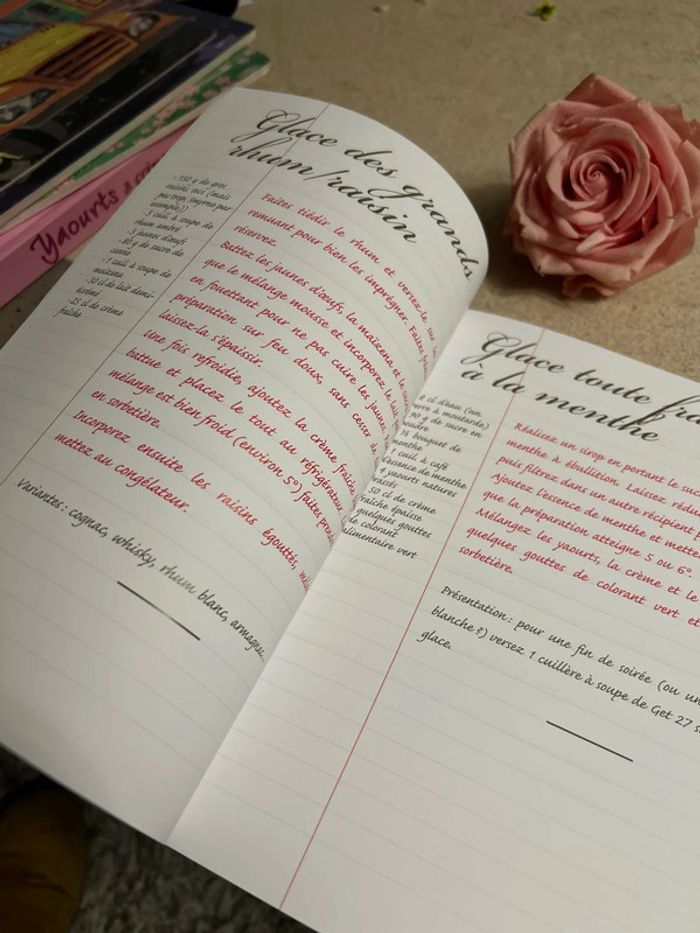 Yaourts
Glace des grands
rhum/raisin
-150 g de gros
raisins secs (mais
pas trop, smyrne par
exemple))
-3 cuil. à soupe de
rhum ambré
-3 jaunes d'œufs
-85 g de sucre de
canne
-1 cuil. à soupe de
maïzena
-30 cl de lait demi-
écrémé
-25 cl de crème
fraîche
Faites tiédir le rhum et versez-le sur
remuant pour bien les imprégner. Faites
réservez.
Battez les jaunes d'œufs, la maïzena et le
que le mélange mousse et incorporez le lait
en fouettant pour ne pas cuire les jaunes
préparation sur feu doux, sans cesser de
laissez-la s'épaissir.
Une fois refroidie, ajoutez la crème fraîche
battue et placez le tout au réfrigérateur
mélange est bien froid (environ 5°) faites
en sorbetière.
Incorporez ensuite les raisins égouttés,
mettez au congélateur.
Variantes : cognac, whisky, rhum blanc, armagnac...
Glace toute
à la menthe
8 cl d'eau (un
verre à moutarde)
90 g de sucre en
poudre
½ bouquet de
menthe
1 cuil. à café
d'essence de menthe
4 yaourts natures
brassés
50 cl de crème
fraîche épaisse
quelques gouttes
de colorant
alimentaire vert
Réalisez un sirop en portant le
menthe à ébullition. Laissez
puis filtrez dans un autre récipient
Ajoutez l'essence de menthe et
que la préparation atteigne 5 ou 6°.
Mélangez les yaourts, la crème et le
quelques gouttes de colorant vert et
sorbetière.
Présentation : pour une fin de soirée (ou
blanche ?) versez 1 cuillère à soupe de Get 27
glace.